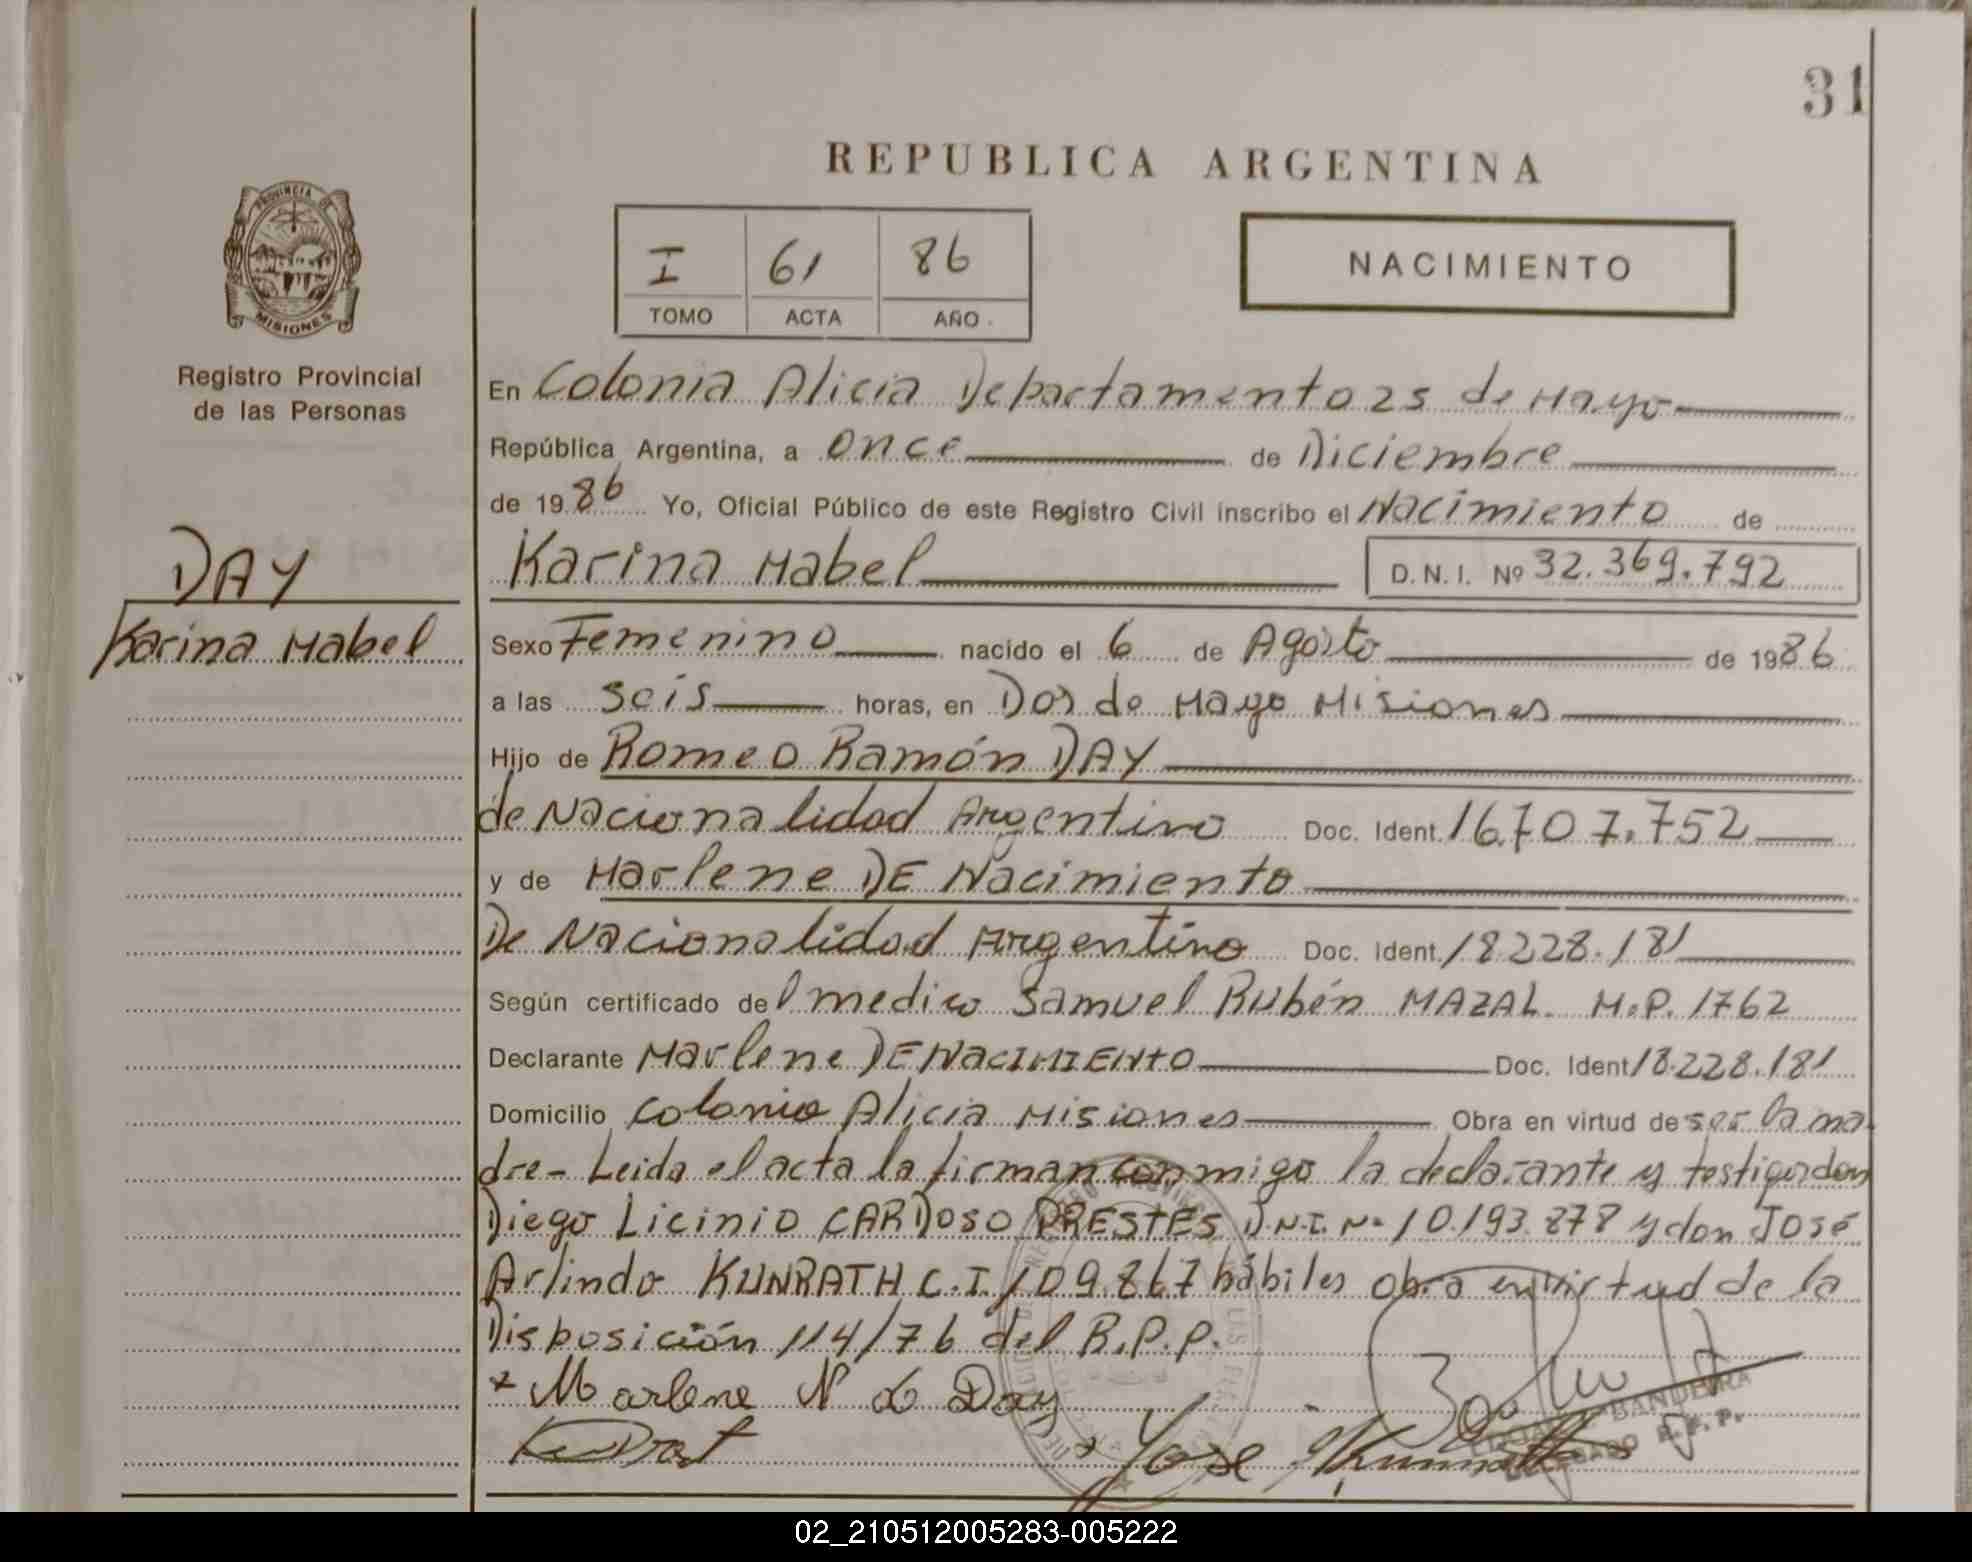 31
REPUBLICA ARGENTINA
PROVINCIA DE
MISIONES
Registro Provincial
de las Personas
I 61 86
TOMO ACTA AÑO
NACIMIENTO
En Colonia Alicia Departamento 25 de Mayo
República Argentina, a once de Diciembre
de 1986 Yo, Oficial Público de este Registro Civil inscribo el Nacimiento de
Karina Mabel D.N.I. Nº 32.369.792
DAY
Karina Mabel
Sexo Femenino nacido el 6 de Agosto de 1986
a las seis horas, en Dos de Mayo Misiones
Hijo de Romeo Ramón DAY
de Nacionalidad Argentino Doc. Ident. 16.707.752
y de Marlene DE Nacimiento
De Nacionalidad Argentino Doc. Ident. 18228.181
Según certificado del medico Samuel Rubén MAZAL. M.P. 1762
Declarante Marlene DE NACIMIENTO Doc. Ident 18.228.181
Domicilio Colonia Alicia Misiones Obra en virtud de ser la ma
dre- Leida el acta la firman conmigo la declarante y testigos don
Diego Licinio CARDOSO PRESTES D.N.I. Nº 10.193.878 y don José
Arlindo KUNRATH C.I. 109.867 hábiles obra en virtud de la
Disposición 114/76 del R.P.P.
+ Marlene N de Day
+ Jose A Kunrath
BANDEIRA
DELEGADO R.P.P.
02_210512005283-005222